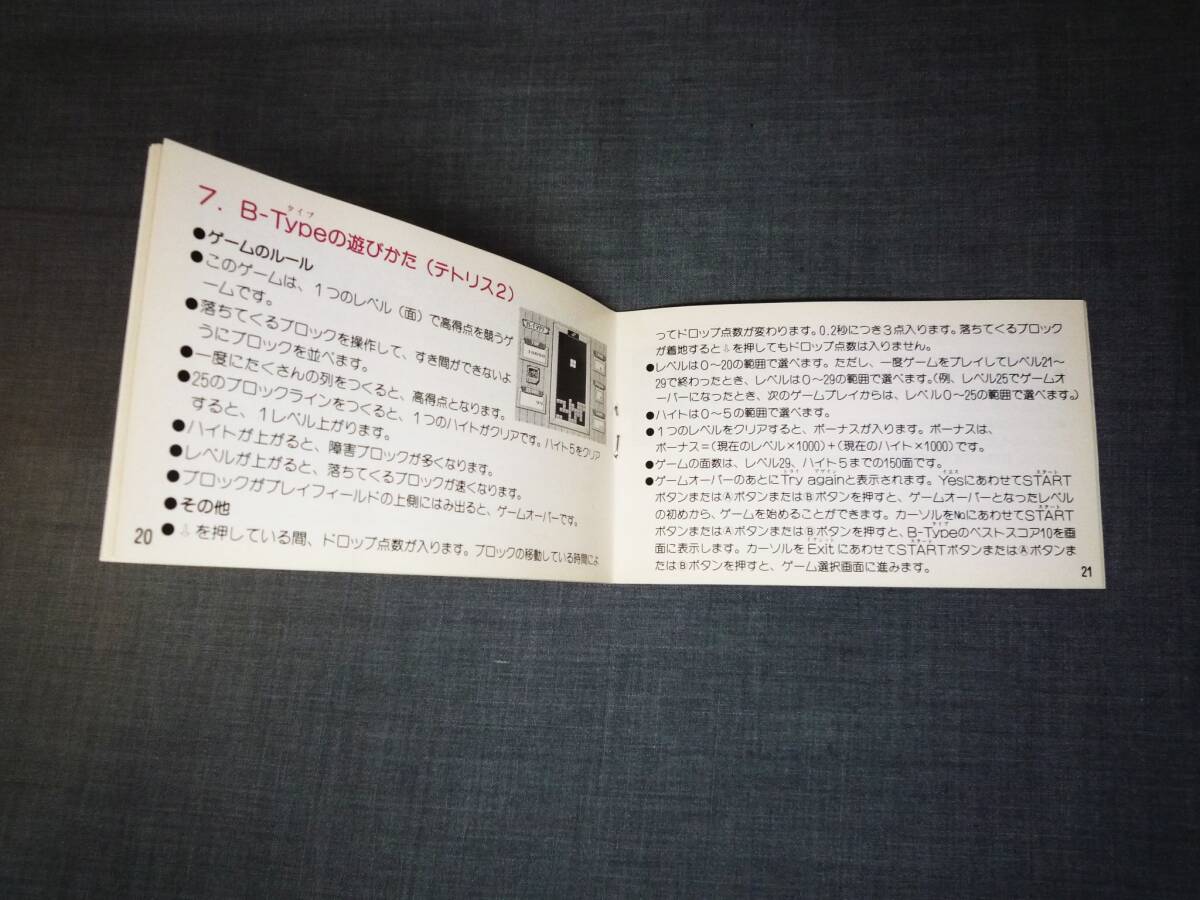 7. B-Typeの遊びかた(テトリス2)
タイプ
●ゲームのルール
●このゲームは、1つのレベル(面)で高得点を競うゲ
ームです。
●落ちてくるブロックを操作して、すき間ができないよ
うにブロックを並べます。
●一度にたくさんの列をつくると、高得点となります。
●25のブロックラインをつくると、1つのハイトがクリアです。ハイト5をクリア
すると、1レベル上がります。
●ハイトが上がると、障害ブロックが多くなります。
●レベルが上がると、落ちてくるブロックが速くなります。
●ブロックがプレイフィールドの上側にはみ出ると、ゲームオーバーです。
●その他
●⇩を押している間、ドロップ点数が入ります。ブロックの移動している時間によ
20
ってドロップ点数が変わります。0.2秒につき3点入ります。落ちてくるブロック
が着地すると⇩を押してもドロップ点数は入りません。
●レベルは0~20の範囲で選べます。ただし、一度ゲームをプレイしてレベル21~
29で終わったとき、レベルは0~29の範囲で選べます。(例、レベル25でゲームオ
ーバーになったとき、次のゲームプレイからは、レベル0~25の範囲で選べます。)
●ハイトは0~5の範囲で選べます。
●1つのレベルをクリアすると、ボーナスが入ります。ボーナスは、
ボーナス=(現在のレベル×1000)+(現在のハイト×1000)です。
●ゲームの面数は、レベル29、ハイト5までの150面です。
トライ アゲイン イエス スタート
●ゲームオーバーのあとにTry againと表示されます。YesにあわせてSTART
ボタンまたはⒶボタンまたはⒷボタンを押すと、ゲームオーバーとなったレベル
スタート
の初めから、ゲームを始めることができます。カーソルをNoにあわせてSTART
タイプ
ボタンまたはⒶボタンまたはⒷボタンを押すと、B-Typeのベストスコア10を画
イグジット スタート
面に表示します。カーソルをExitにあわせてSTARTボタンまたはⒶボタンま
たはⒷボタンを押すと、ゲーム選択画面に進みます。
21